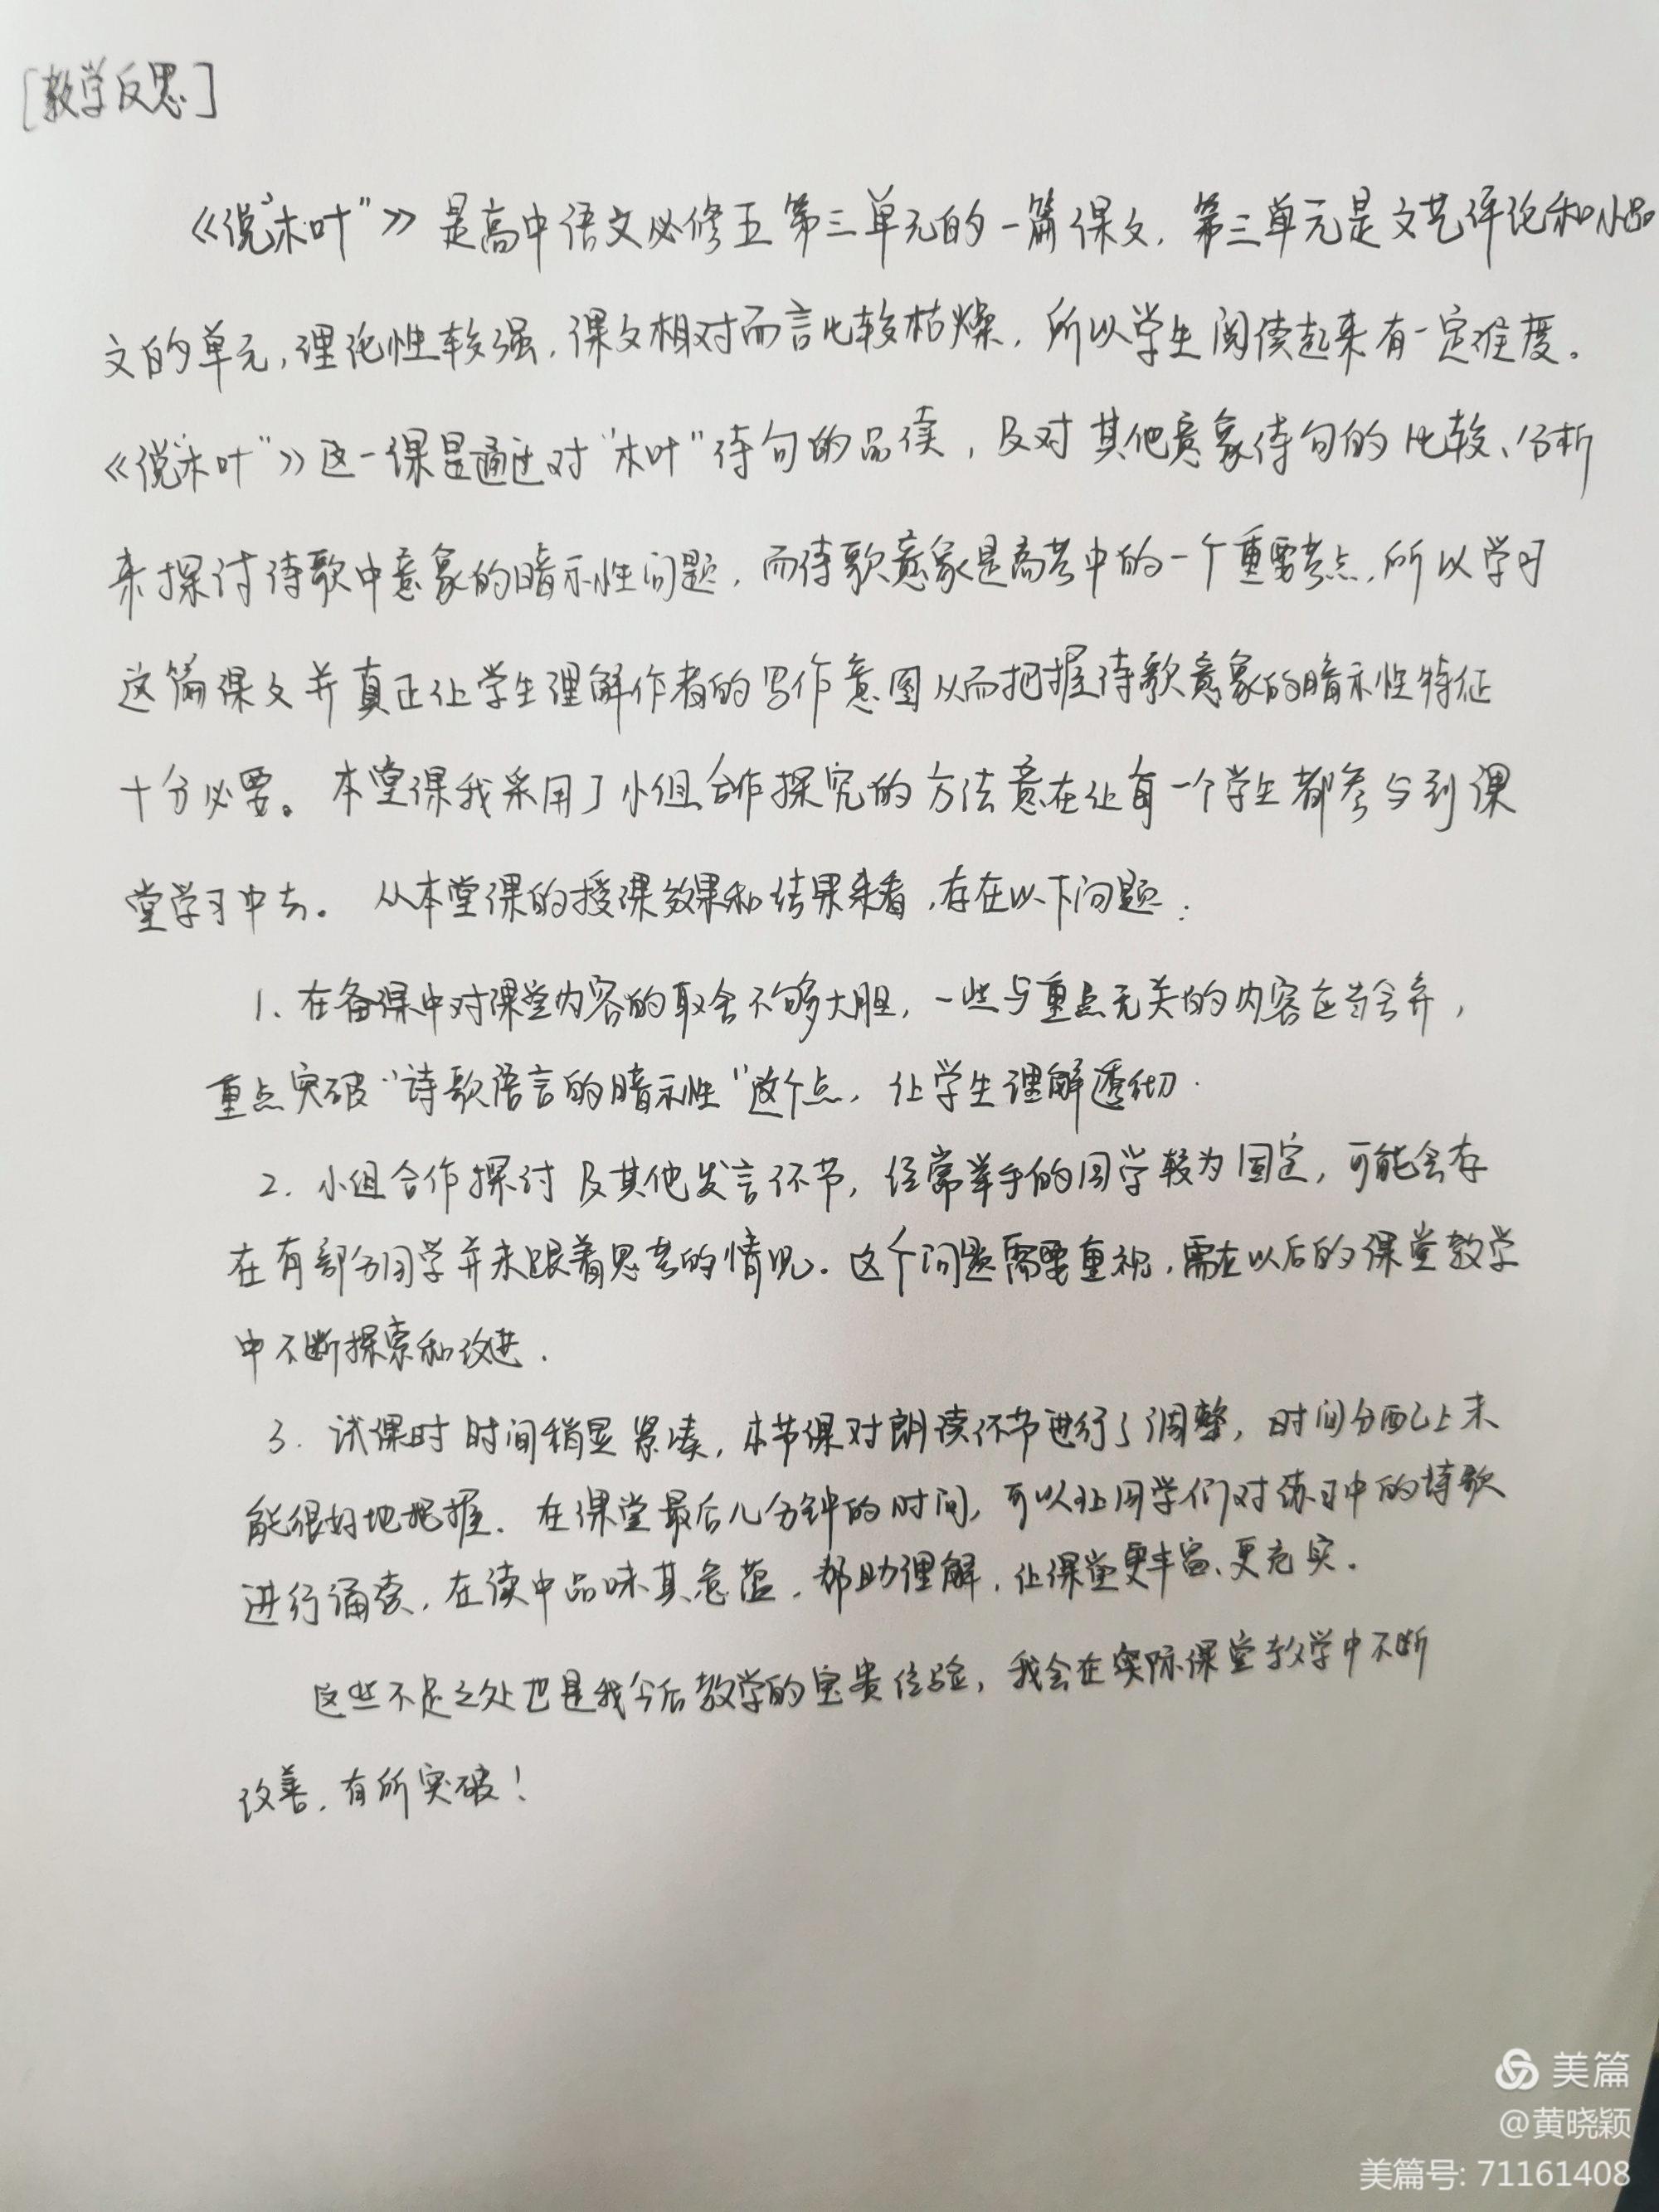 [教学反思]
《说"木叶"》是高中语文必修五第三单元的一篇课文，第三单元是文艺评论和小品
文的单元，理论性较强，课文相对而言比较枯燥，所以学生阅读起来有一定难度。
《说"木叶"》这一课是通过对"木叶"诗句的品读，及对其他意象诗句的比较、分析
来探讨诗歌中意象的暗示性问题，而诗歌意象是高考中的一个重要考点，所以学习
这篇课文并真正让学生理解作者的写作意图从而把握诗歌意象的暗示性特征
十分必要。本堂课我采用了小组合作探究的方法意在让每一个学生都参与到课
堂学习中去。从本堂课的授课效果和结果来看，存在以下问题：
1、在备课中对课堂内容的取舍不够大胆，一些与重点无关的内容应当舍弃，
重点突破"诗歌语言的暗示性"这个点，让学生理解透彻.
2. 小组合作探讨及其他发言环节，经常举手的同学较为固定，可能会存
在有部分同学并未跟着思考的情况。这个问题需要重视，需在以后的课堂教学
中不断探索和改进.
3. 试课时时间稍显紧凑，本节课对朗读环节进行了调整，时间分配上未
能很好地把握. 在课堂最后几分钟的时间，可以让同学们对练习中的诗歌
进行诵读，在读中品味其意蕴，帮助理解，让课堂更丰富、更充实.
这些不足之处也是我今后教学的宝贵经验，我会在实际课堂教学中不断
改善，有所突破！
美篇
@黄晓颖
美篇号: 71161408